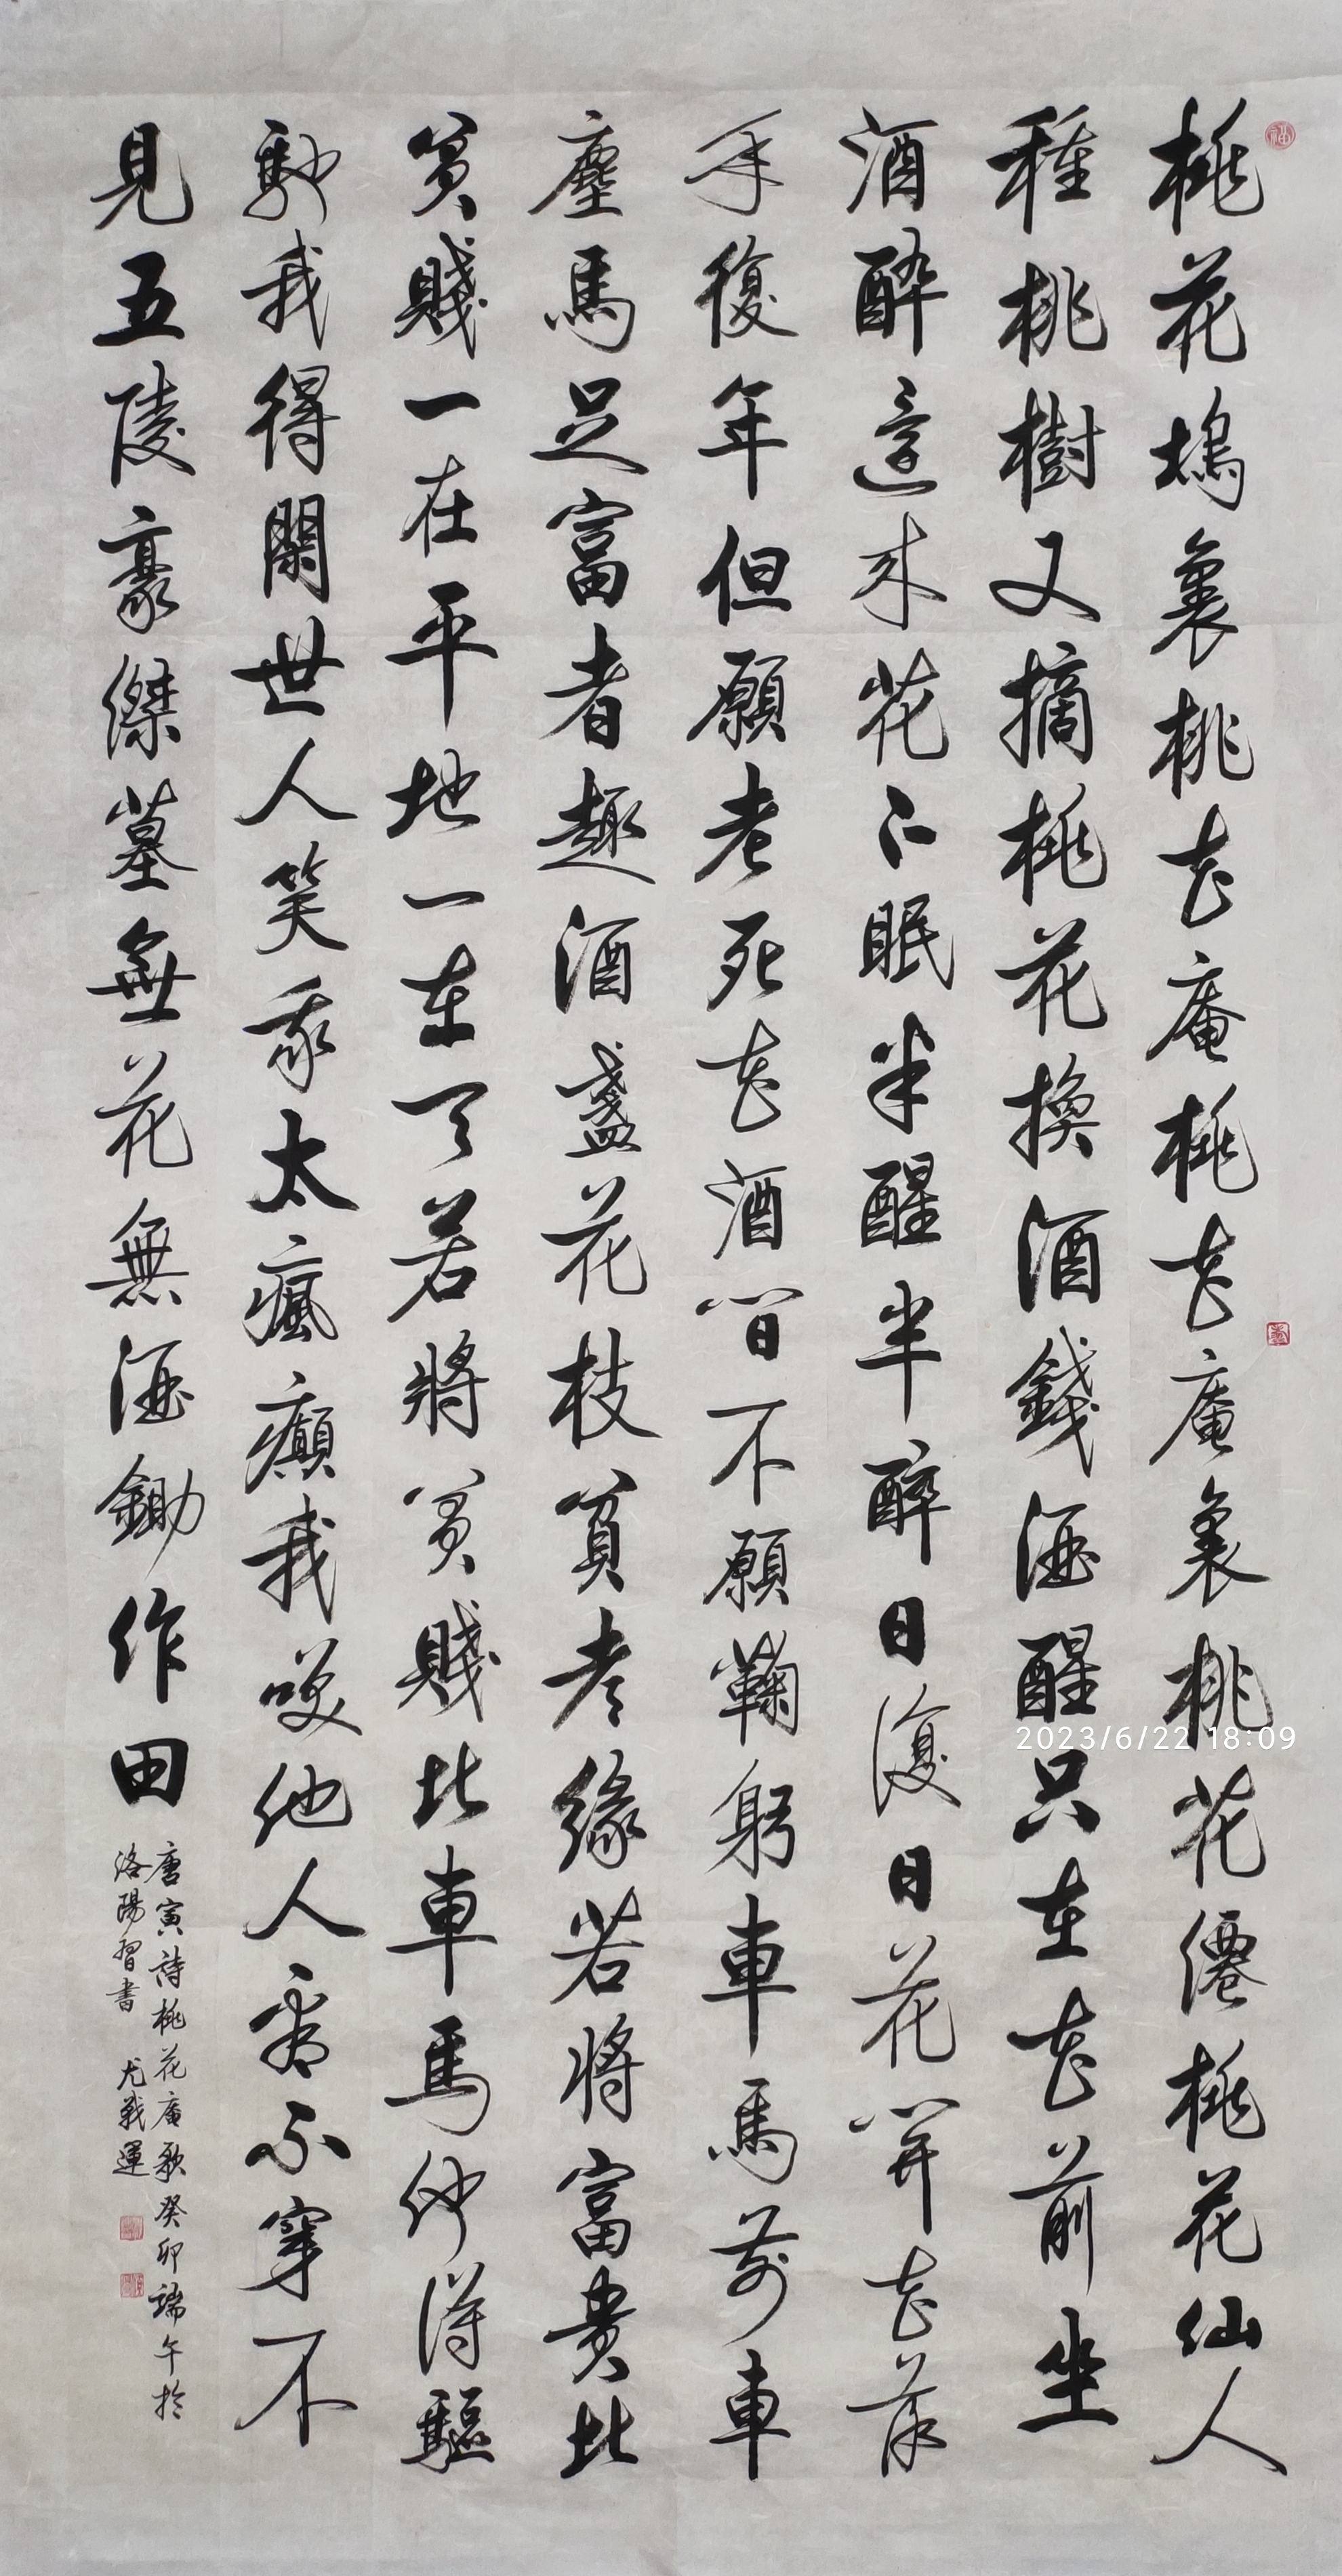 桃花塢裏桃花庵桃花庵裏桃花僊桃花仙人
種桃樹又摘桃花換酒錢酒醒只在花前坐
酒醉還来花下眠半醒半醉日復日花開花落
年復年但願老死花酒間不願鞠躬車馬前車
塵馬足富者趣酒盞花枝貧者緣若將富貴比
貧賤一在平地一在天若將貧賤比車馬他得驅
馳我得閑世人笑我太瘋癲我咲他人看不穿不
見五陵豪傑墓無花無酒鋤作田
唐寅詩桃花庵歌癸卯端午於
洛陽習書 尤戰運
2023/6/22 18:09